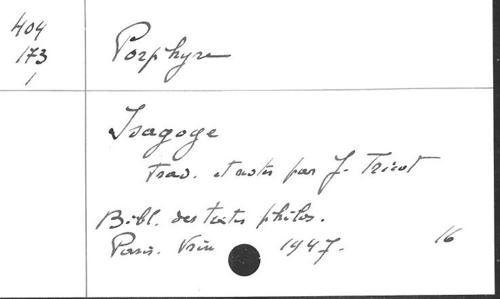 404
173
1
Porphyre
Isagoge
trad. et notes par J. Tricot
Bibl. des textes philos.
Paris. Vrin 1947. 16